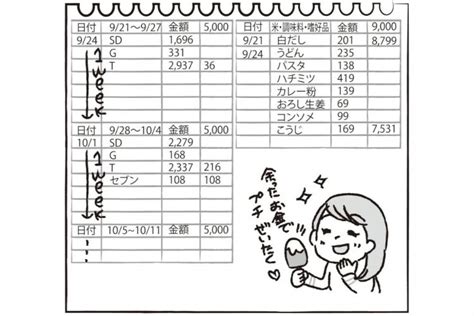 日付 9/21〜9/27 金額 5,000
9/24 SD 1,696
G 331
T 2,937 36
1 week
日付 9/28〜10/4 金額 5,000
10/1 SD 2,279
G 168
T 2,337 216
セブン 108 108
1 week
日付 10/5〜10/11 金額 5,000
日付 米・調味料・嗜好品 9,000
9/21 白だし 201 8,799
9/24 うどん 235
パスタ 138
ハチミツ 419
カレー粉 139
おろし生姜 69
コンソメ 99
こうじ 169 7,531
余ったお金で
プチぜいたく♡